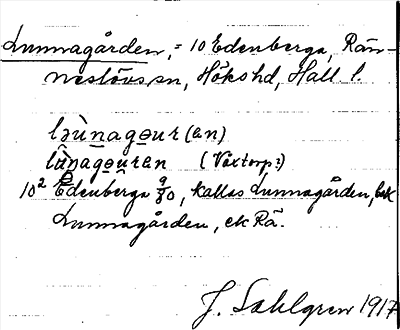 Lunnagården, = 10 Edenberga, Rän-
neslövs sn, Höks hd, Hall. l.
ləùnagəur (en)
lûnagəuren (Våxtorp?)
10² Edenberga 9/80, kallas Lunnagården, bek
Lunnagården, ek Rä.
J. Sahlgren 1917